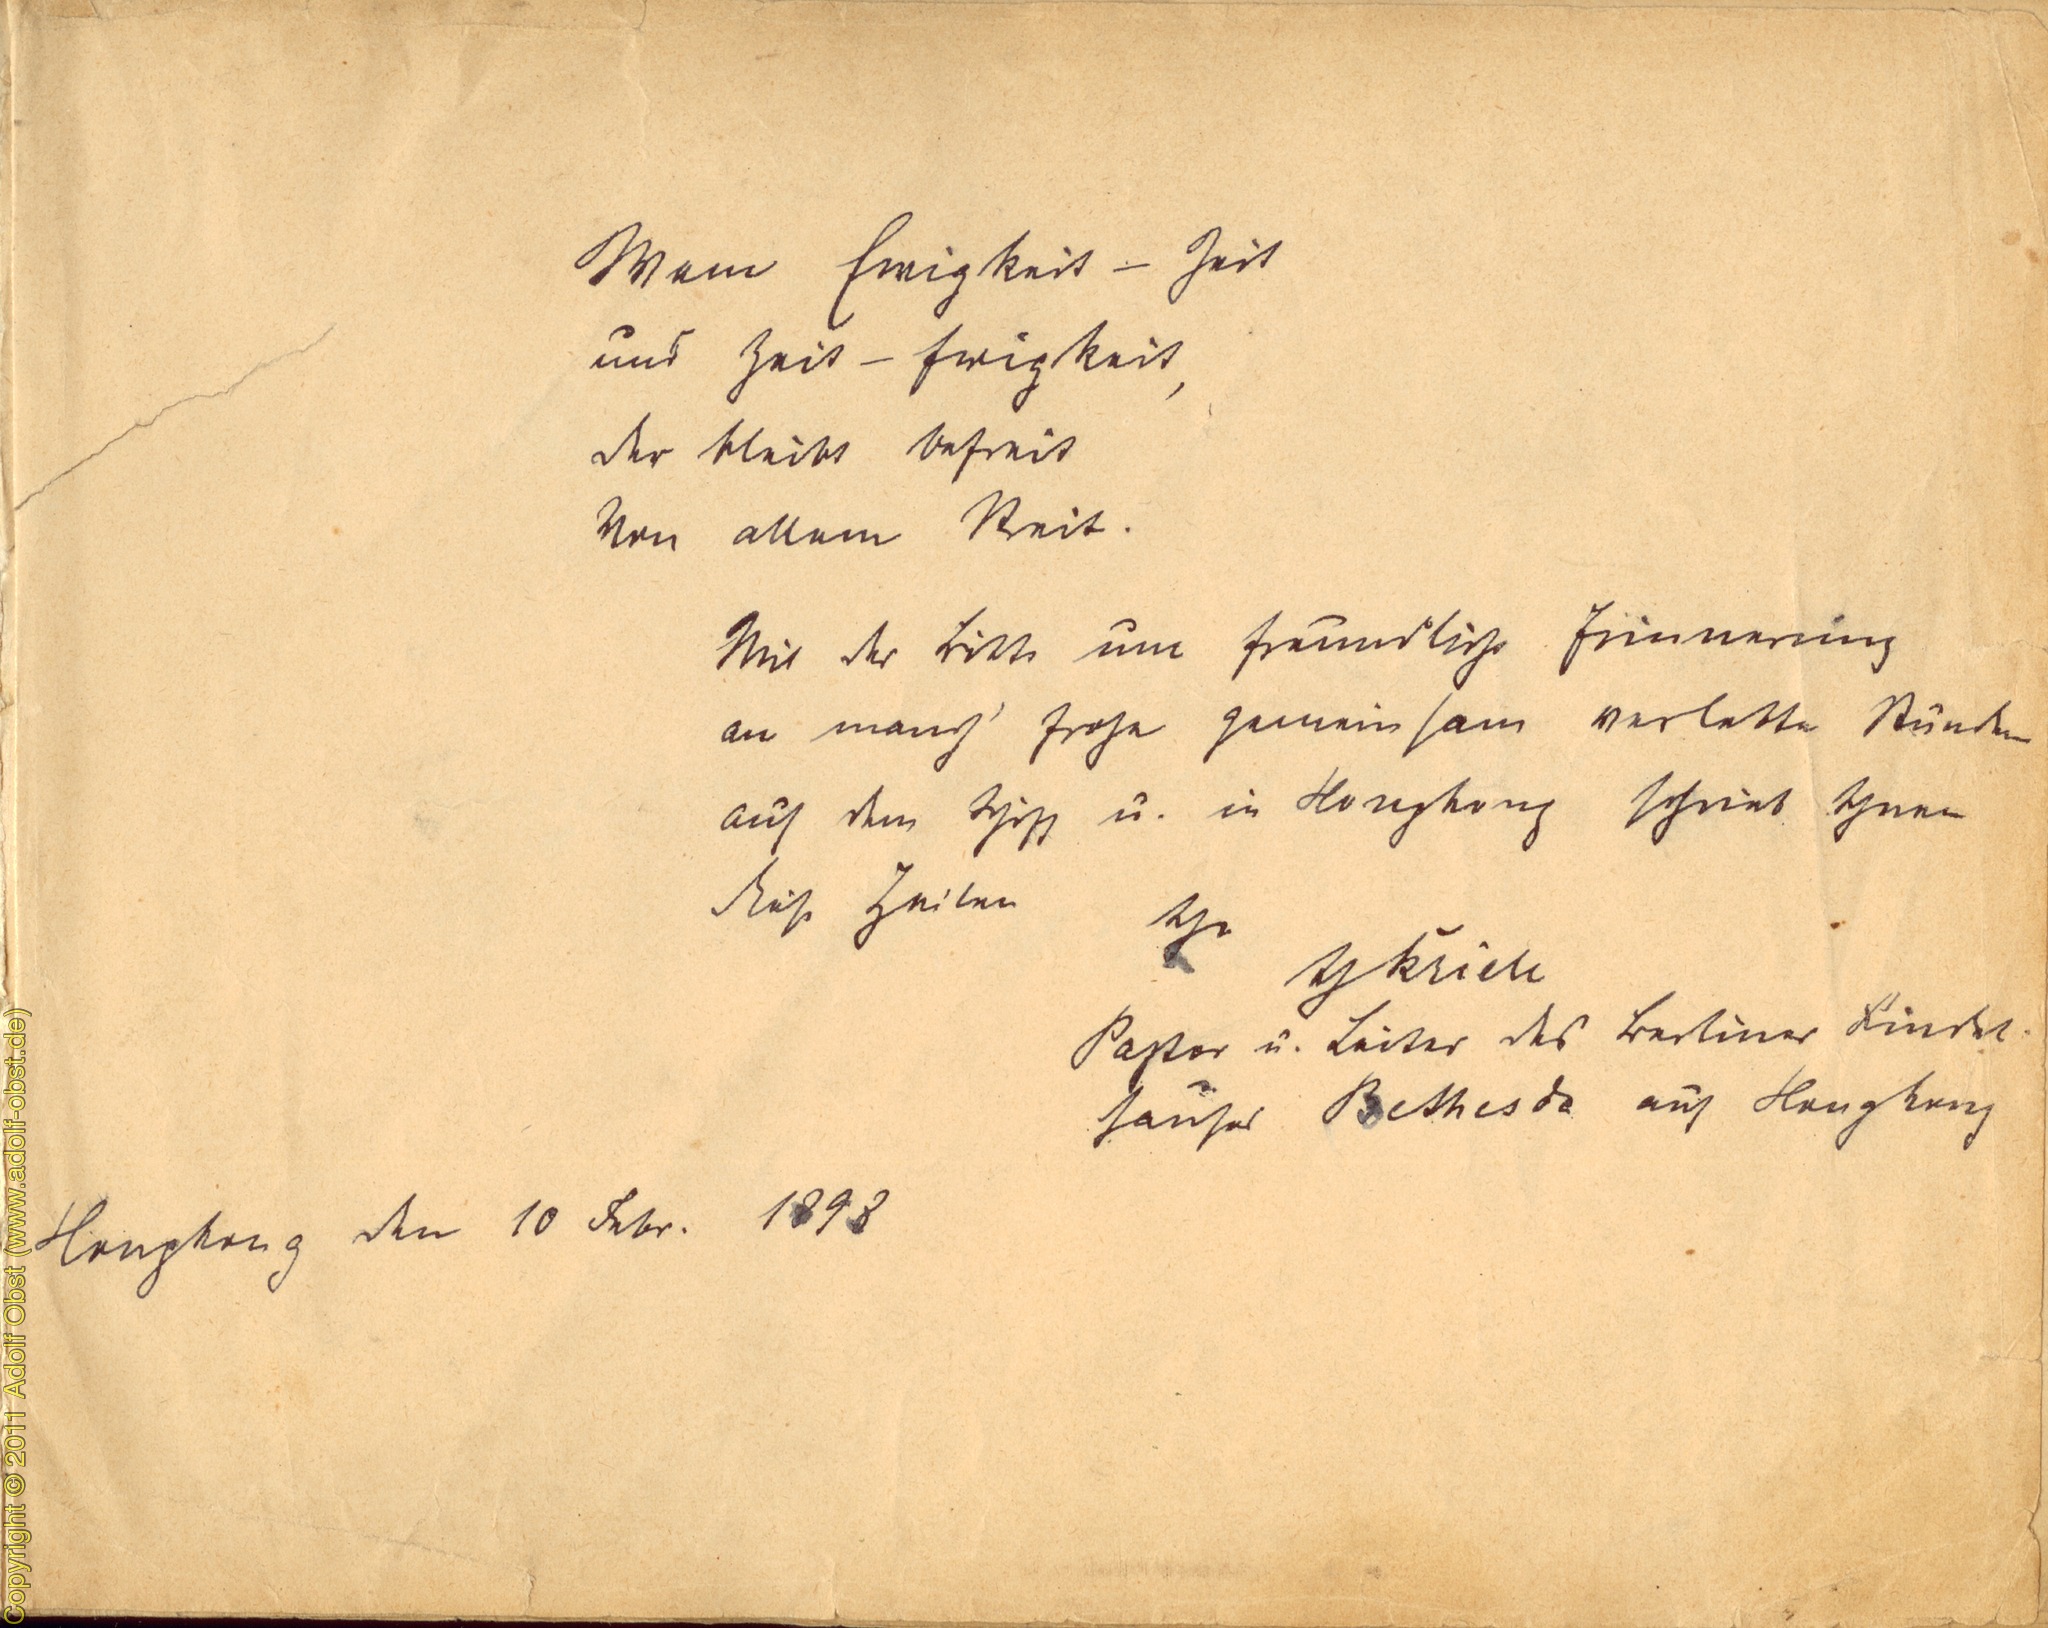 Wem Ewigkeit – Zeit
und Zeit – Ewigkeit,
der bleibt befreit
Von allem Streit.
Mit der Bitte um freundliche Erinnerung
an manch' frohe gemeinsam verlebte Stunden
auf dem Schiff u. in Hongkong schrieb Ihnen
diese Zeilen
Ihr
Kriele
Pastor u. Leiter des Berliner Findel-
hauses Bethesda auf Hongkong
Hongkong den 10 Febr. 1898
Copyright © 2011 Adolf Obst (www.adolf-obst.de)